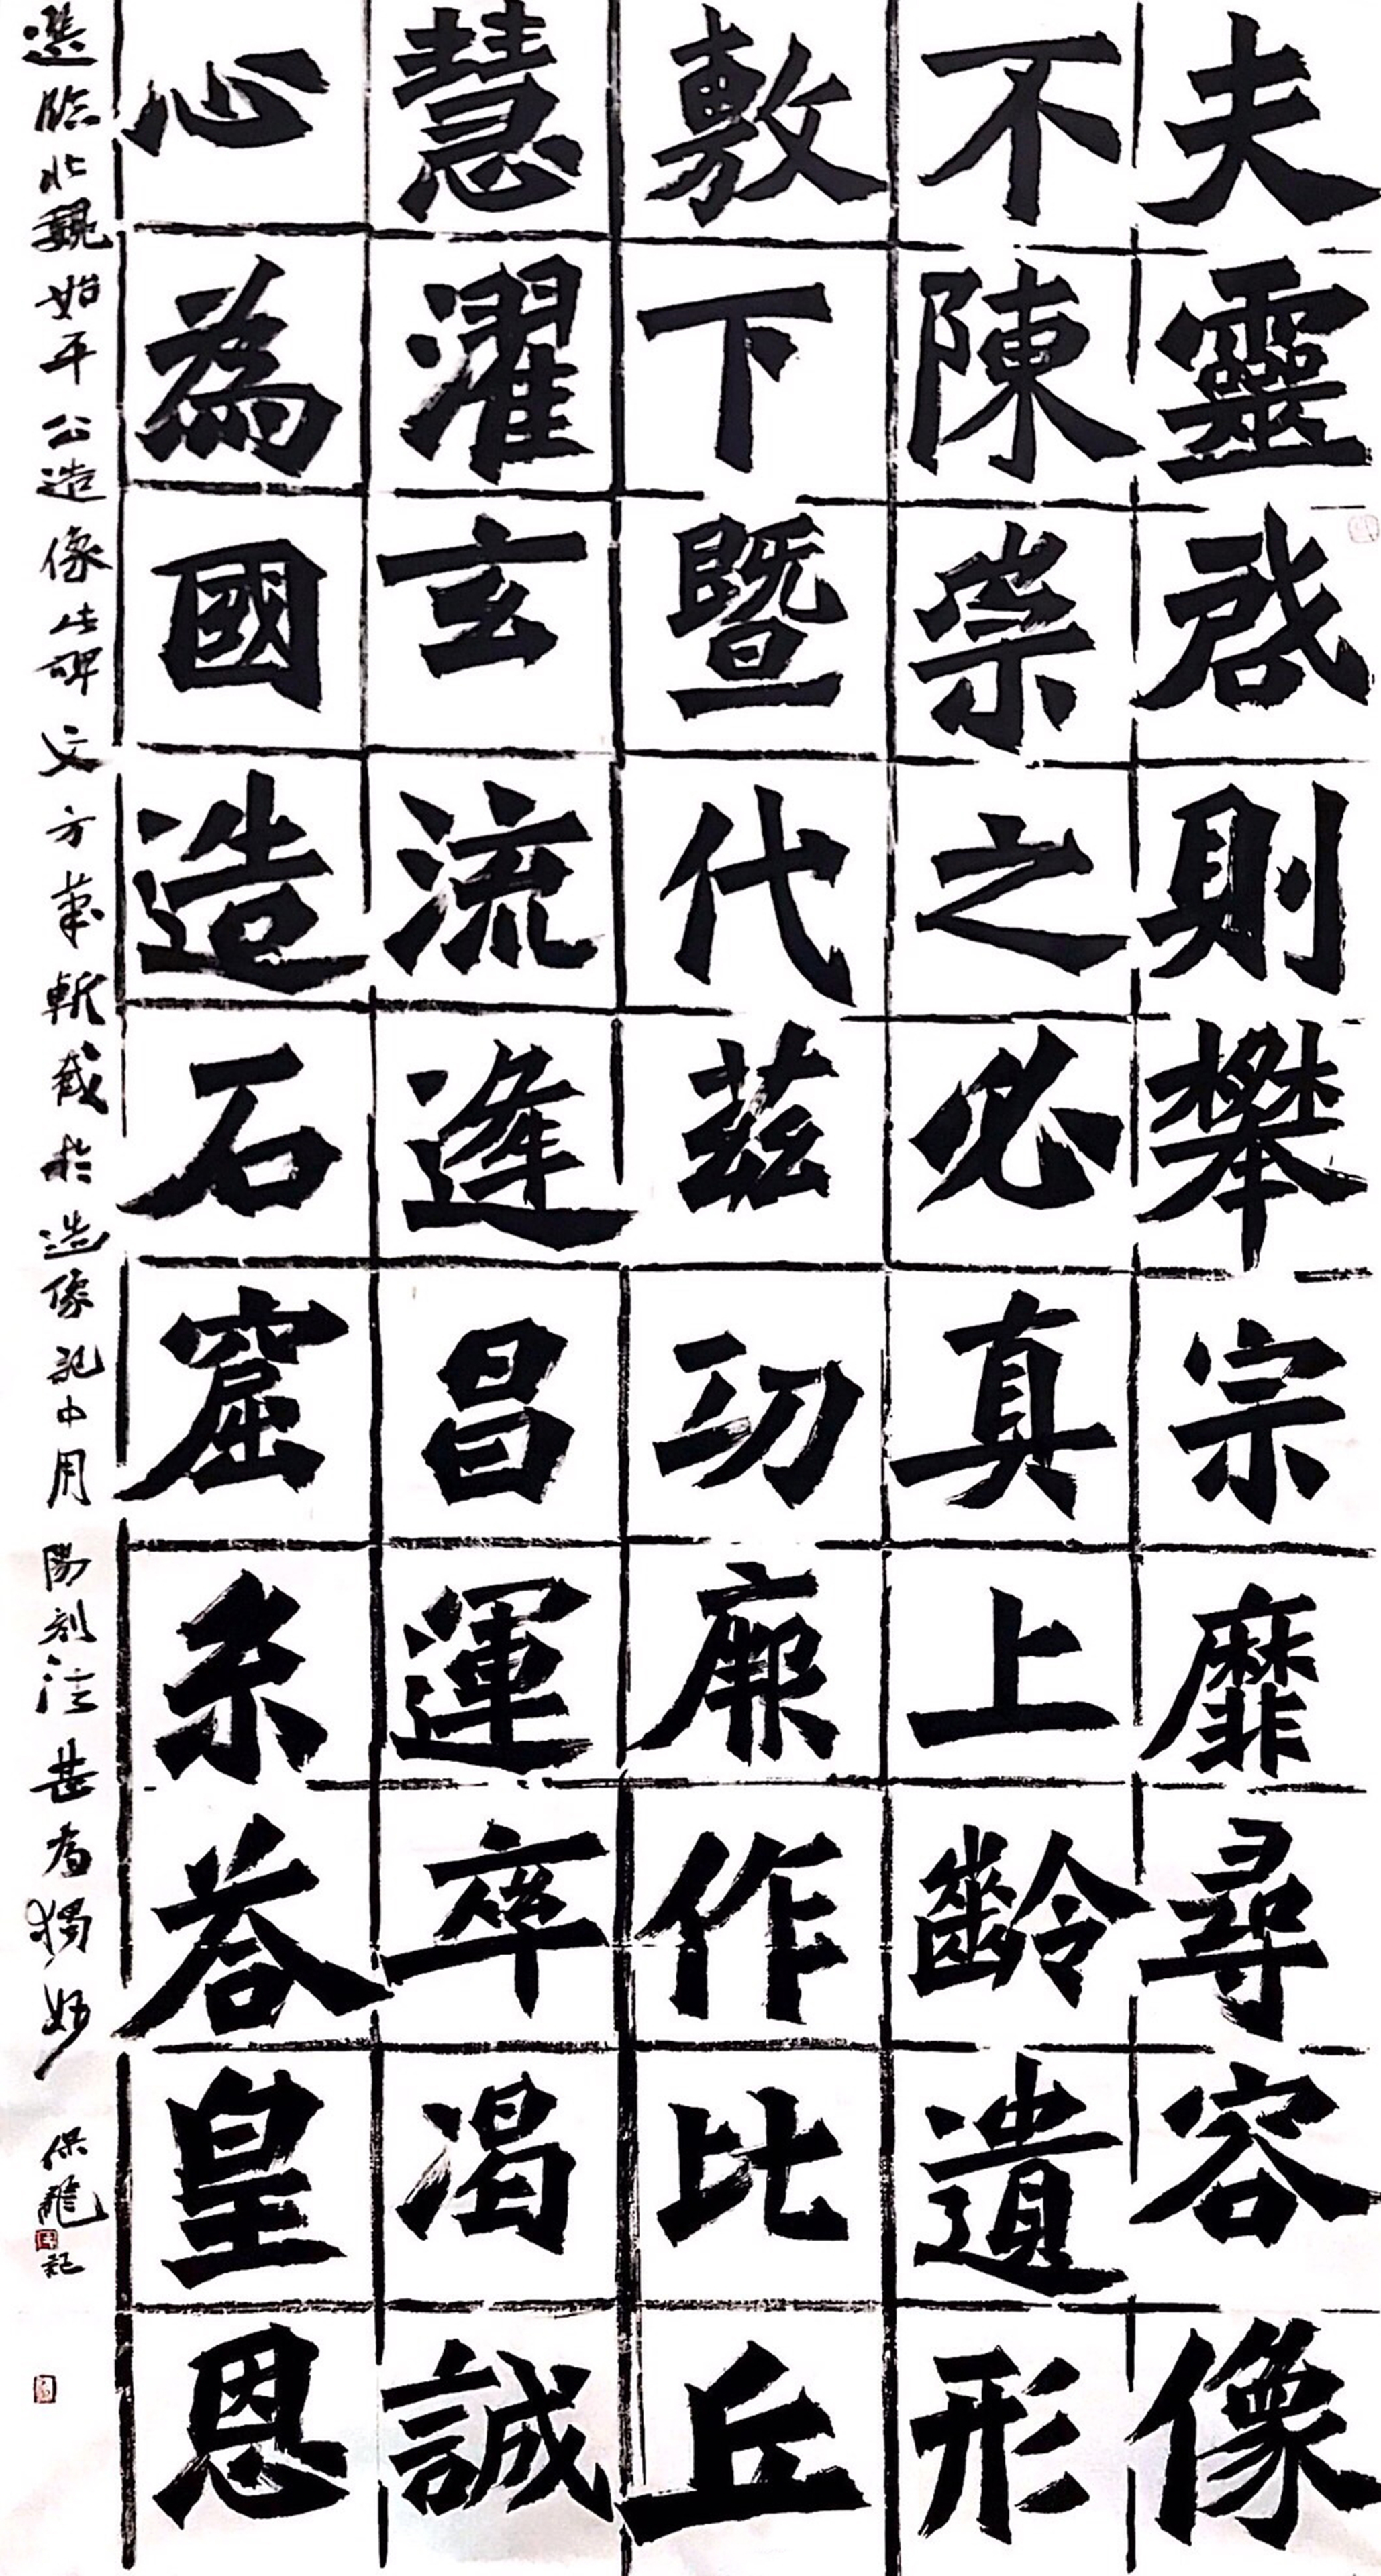 夫靈啓則攀宗靡尋容像
不陳崇之必真上齡遺形
敷下暨代茲功厥作比丘
慧濯玄流逢昌運卒渴誠
心為國造石窟系答皇恩
選臨北魏始平公造像此碑文方筆斬截於造像記中用陽刻法甚為獨妙 保龍記